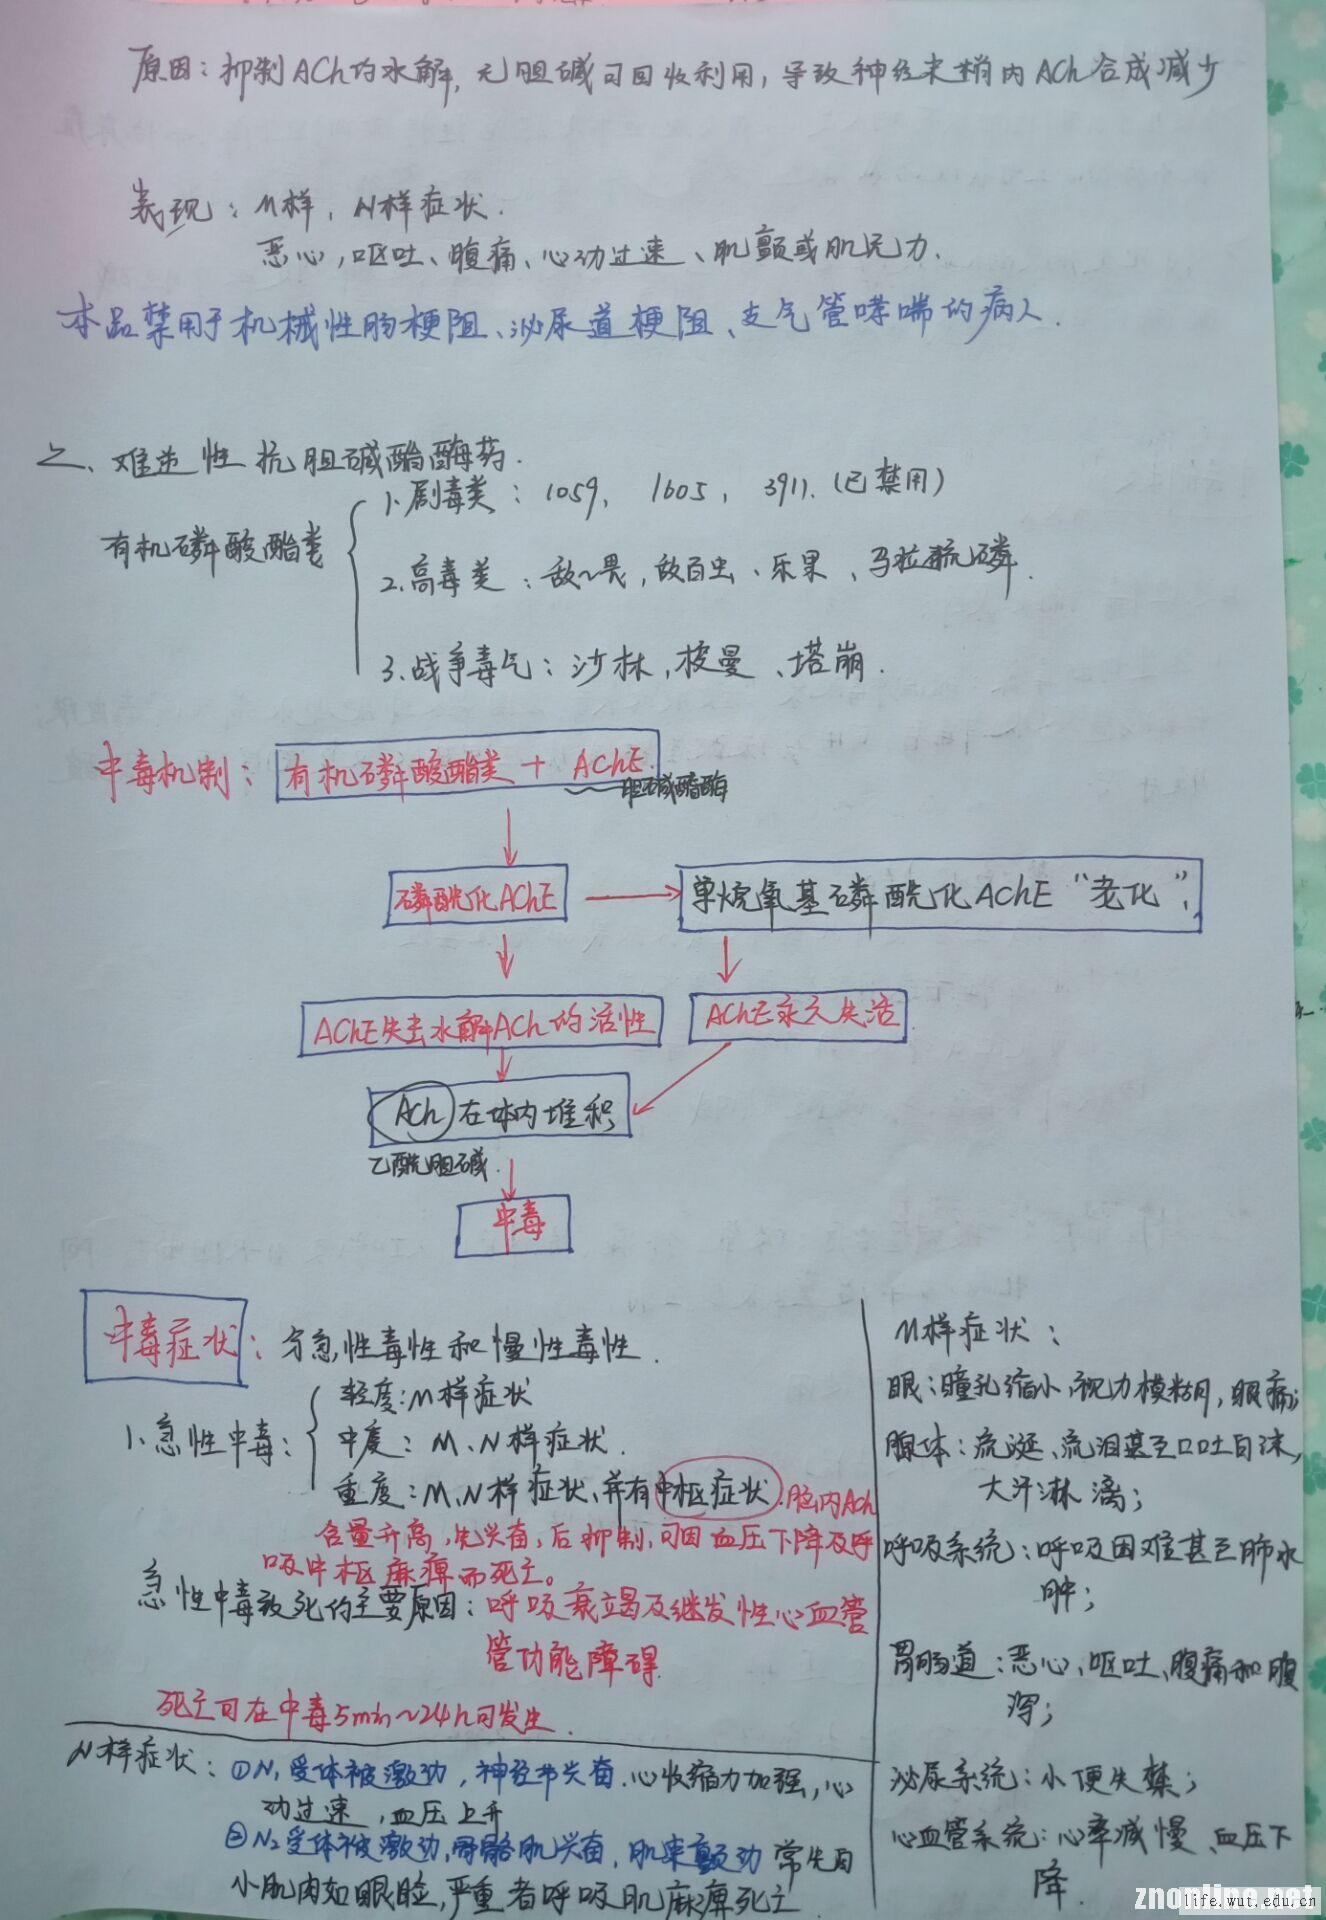 原因：抑制ACh的水解，无胆碱可回收利用，导致神经末梢内ACh合成减少
表现：M样，N样症状．
恶心，呕吐、腹痛、心动过速、肌颤或肌无力．
本品禁用于机械性肠梗阻、泌尿道梗阻、支气管哮喘的病人．
二、难逆性抗胆碱酯酶药．
有机磷酸酯类
1.剧毒类：1059，1605，3911．（已禁用）
2.高毒类：敌~畏，敌百虫、乐果、马拉硫磷．
3.战争毒气：沙林，梭曼、塔崩．
中毒机制：
有机磷酸酯类 + AChE．
胆碱酯酶
磷酰化AChE
单烷氧基磷酰化AChE“老化”．
AChE失去水解ACh的活性
AChE永久失活
ACh在体内堆积
乙酰胆碱．
中毒
中毒症状：分急性毒性和慢性毒性．
1.急性中毒：
轻度：M样症状
中度：M、N样症状．
重度：M、N样症状、并有中枢症状．脑内ACh
含量升高，先兴奋，后抑制，可因血压下降及呼
吸中枢麻痹而死亡。
急性中毒致死的主要原因：呼吸衰竭及继发性心血管
管功能障碍．
死亡可在中毒5min~24h内发生．
N样症状：①N₁受体被激动，神经节兴奋．心收缩力加强，心
动过速，血压上升
②N₂受体被激动，骨骼肌兴奋，肌束颤动 常先自
小肌肉如眼睑，严重者呼吸肌麻痹死亡
M样症状：
眼：瞳孔缩小，视力模糊，眼痛；
腺体：流涎、流泪甚至口吐白沫，
大汗淋漓；
呼吸系统：呼吸困难甚至肺水
肿；
胃肠道：恶心、呕吐、腹痛和腹
泻；
泌尿系统：小便失禁；
心血管系统：心率减慢、血压下
降．
znonline.net
life.wut.edu.cn